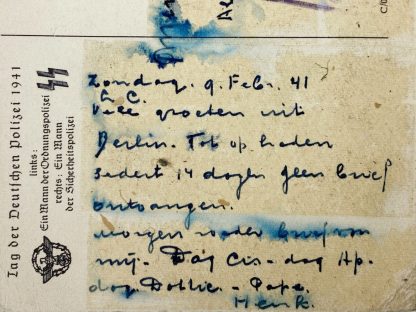 Tag der Deutschen Polizei 1941
links:
Ein Mann der Ordnungspolizei
rechts: Ein Mann
der Sicherheitspolizei
Zondag. 9. Febr. 41
L. C.
Vele groeten uit
Berlin. Tot op heden
sedert 14 dagen geen brief
ontvangen.
Morgen weder brief van
mij. Dag Cis - dag Ap.
dag Dollie - Papa.
Henk.